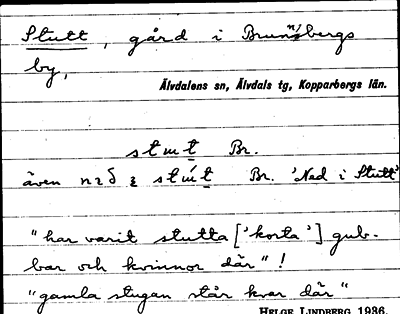 Stutt, gård i Brunnsbergs
by,
Älvdalens sn, Älvdals tg, Kopparbergs län.
Br.
även Br. 'Ned i Stutt'
"har varit stutta ['korta'] gub-
bar och kvinnor där"!
"gamla stugan står kvar där"
HELGE LINDBERG 1936.